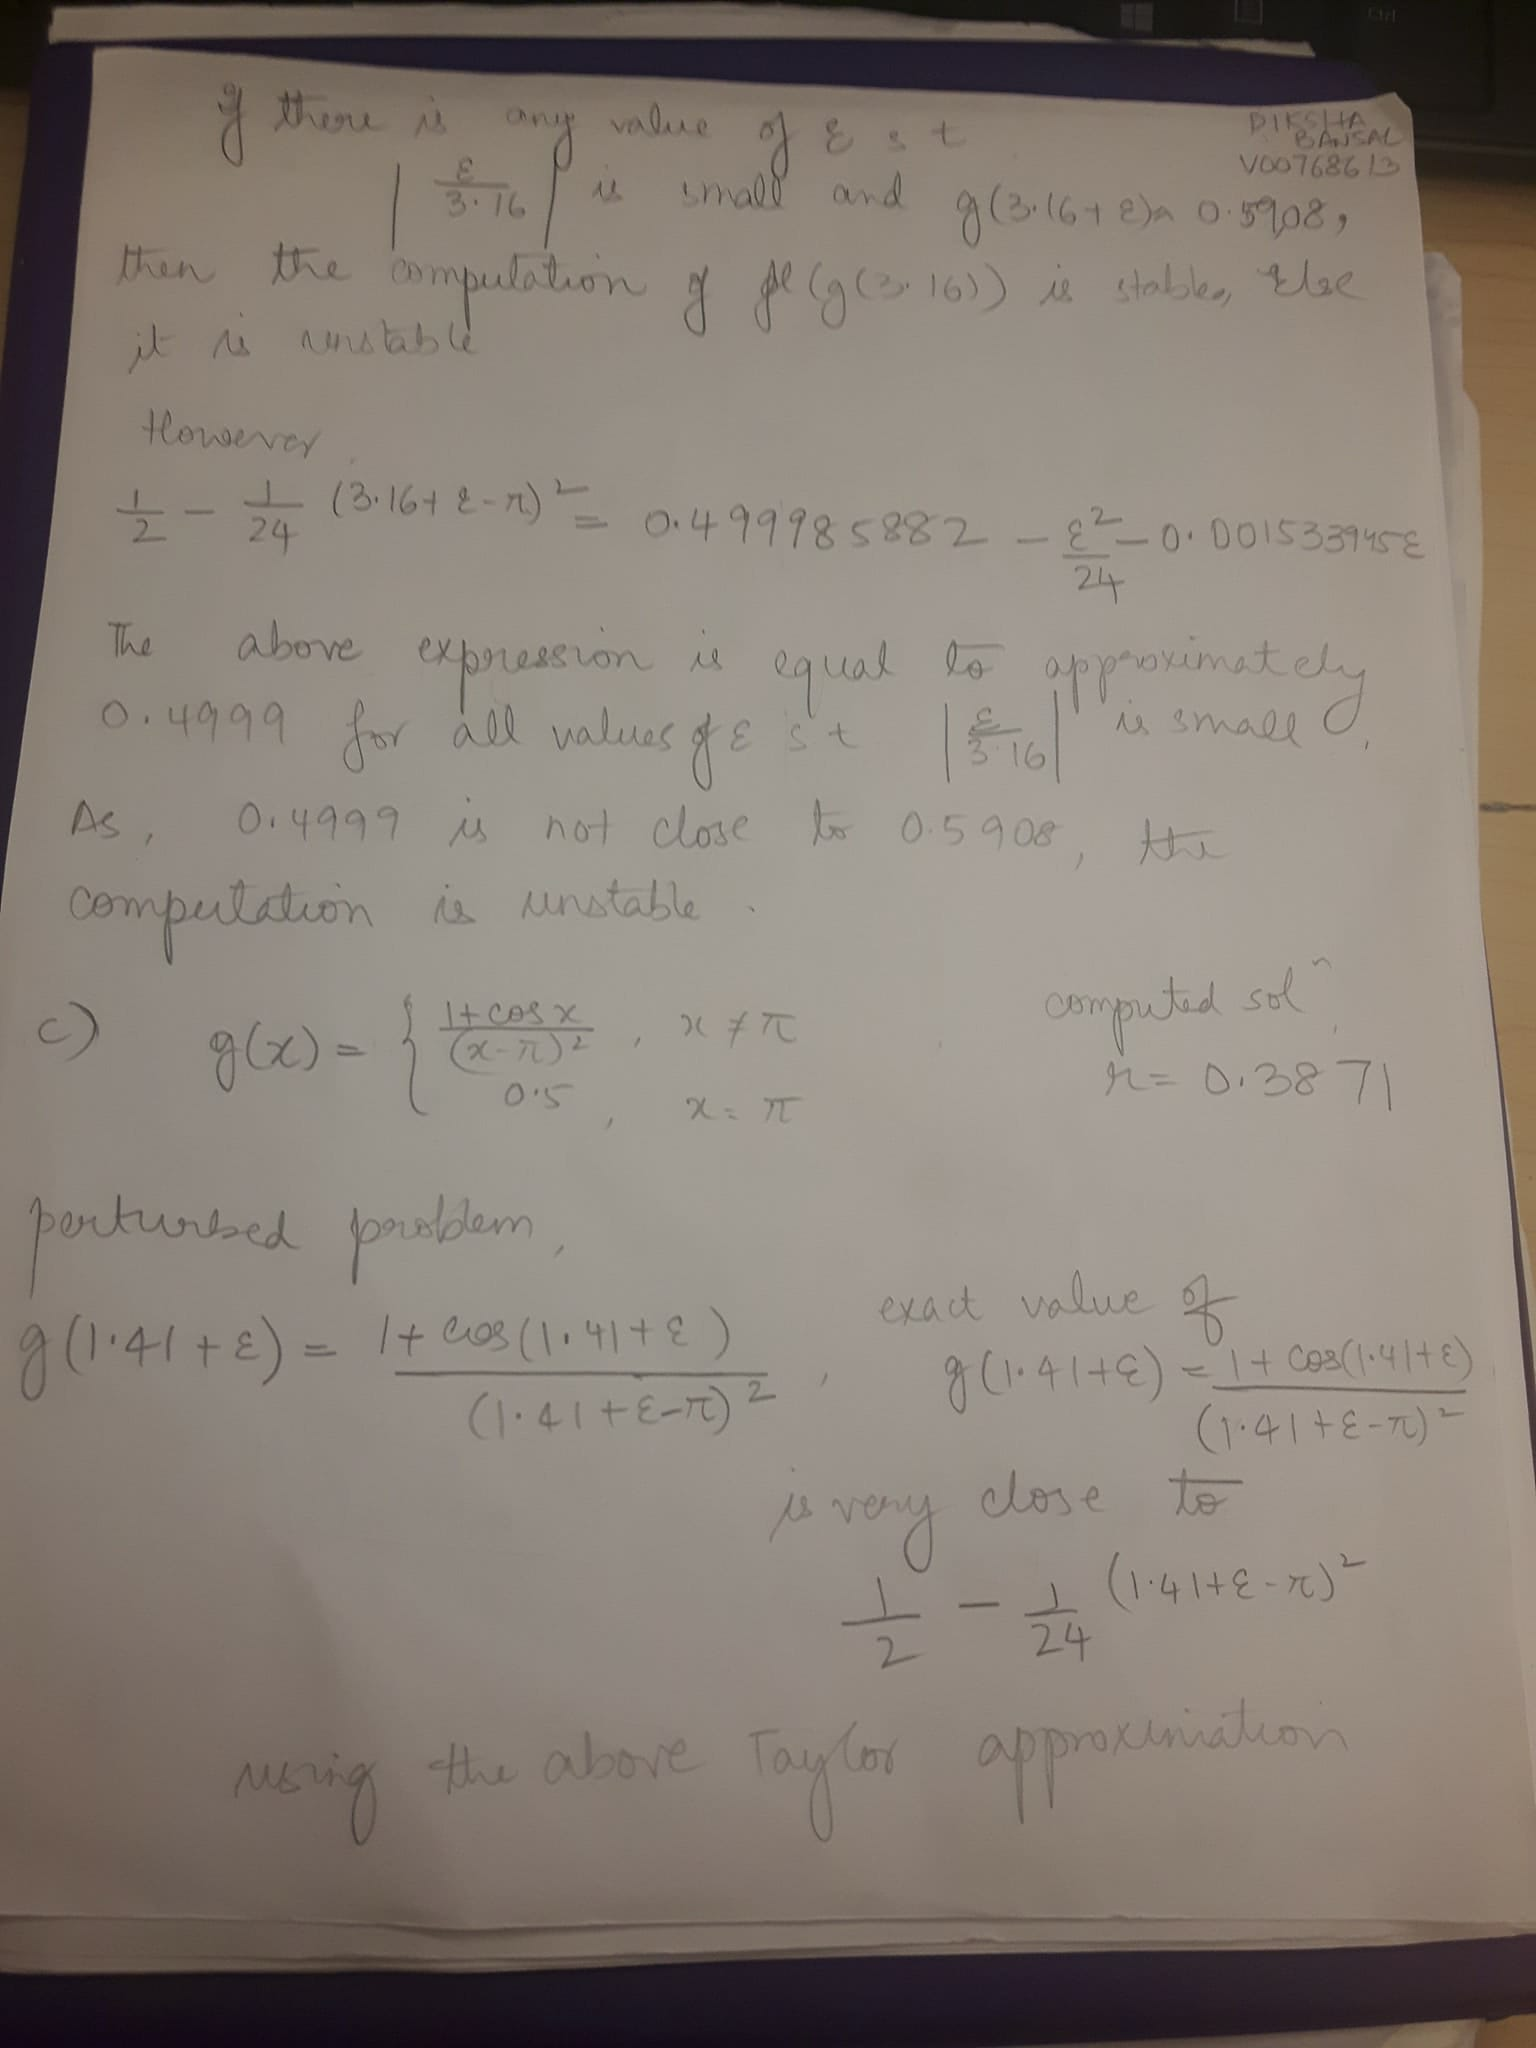 If there is any value of ε s t
DIKSHA
BANSAL
V00768613
|ε/3.16| is small and g(3.16+ε)≈ 0.5908,
then the computation of fl(g(3.16)) is stable, Else
it is unstable
However,
1/2 - 1/24 (3.16+ε-π)² = 0.499985882 - ε²/24 - 0.001533945ε
The above expression is equal to approximately
0.4999 for all values of ε s t |ε/3.16| is small,
As, 0.4999 is not close to 0.5908, the
computation is unstable.
c) g(x) = { 1+cos x/(x-π)², x ≠ π
0.5, x = π
computed solⁿ,
r = 0.3871
perturbed problem,
g(1.41+ε) = 1+ cos(1.41+ε)/(1.41+ε-π)²,
exact value of
g(1.41+ε) = 1+ cos(1.41+ε)/(1.41+ε-π)²
is very close to
1/2 - 1/24 (1.41+ε-π)²
using the above Taylor approximation